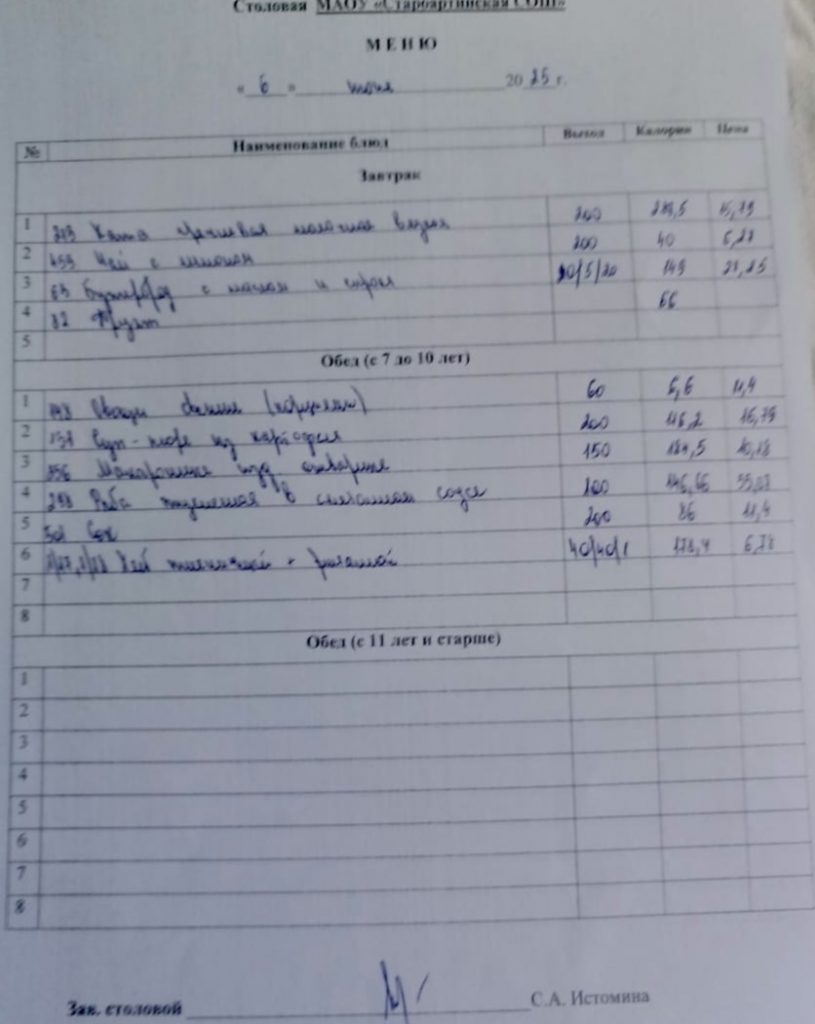 Столовая МАОУ «Староартинская СОШ»
МЕНЮ
« 6 » июня 2025 г.
№ Наименование блюд Выход Калории Цена
Завтрак
1 Каша гречневая молочная вязкая 200 15,79
2 459 Чай с лимоном 200 40
3 63 Бутерброд с маслом и сыром 149
4 82 Фрукт 66
5
Обед (с 7 до 10 лет)
1 148 Овощи свежие 60 6,6 11,4
2 Суп-пюре из картофеля 200 116,2 16,79
3 256 Макаронные изд отварные 150
4 Рыба тушеная в сметанном соусе 100
5 501 Сок 200 86 11,4
6 Хлеб пшеничный + ржаной 40/40/1 178,4 6,78
7
8
Обед (с 11 лет и старше)
1
2
3
4
5
6
7
8
Зав. столовой С.А. Истомина